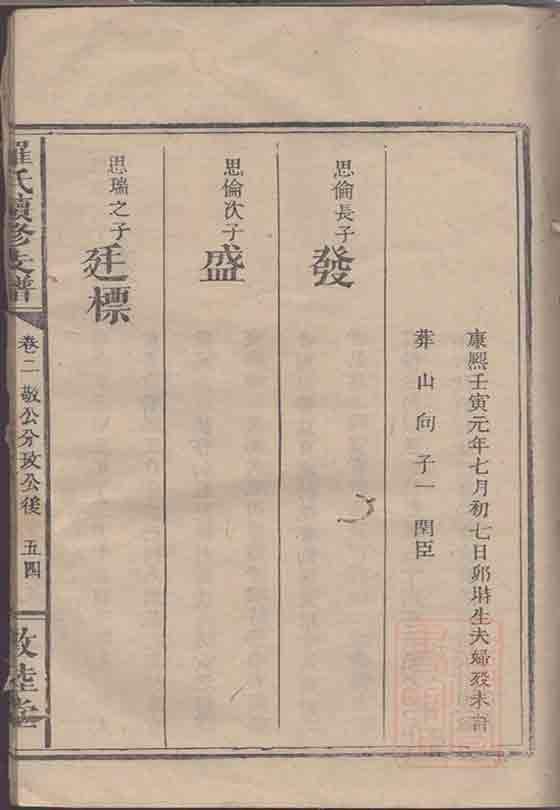 康熙壬寅元年七月初七日卯時生夫婦歿未詳
葬 山 向 子一 閏臣
思倫長子
發
思倫次子
盛
思瑞之子
廷標
羅氏續修支譜
卷二 敬公分孜公後 五四
敦睦堂